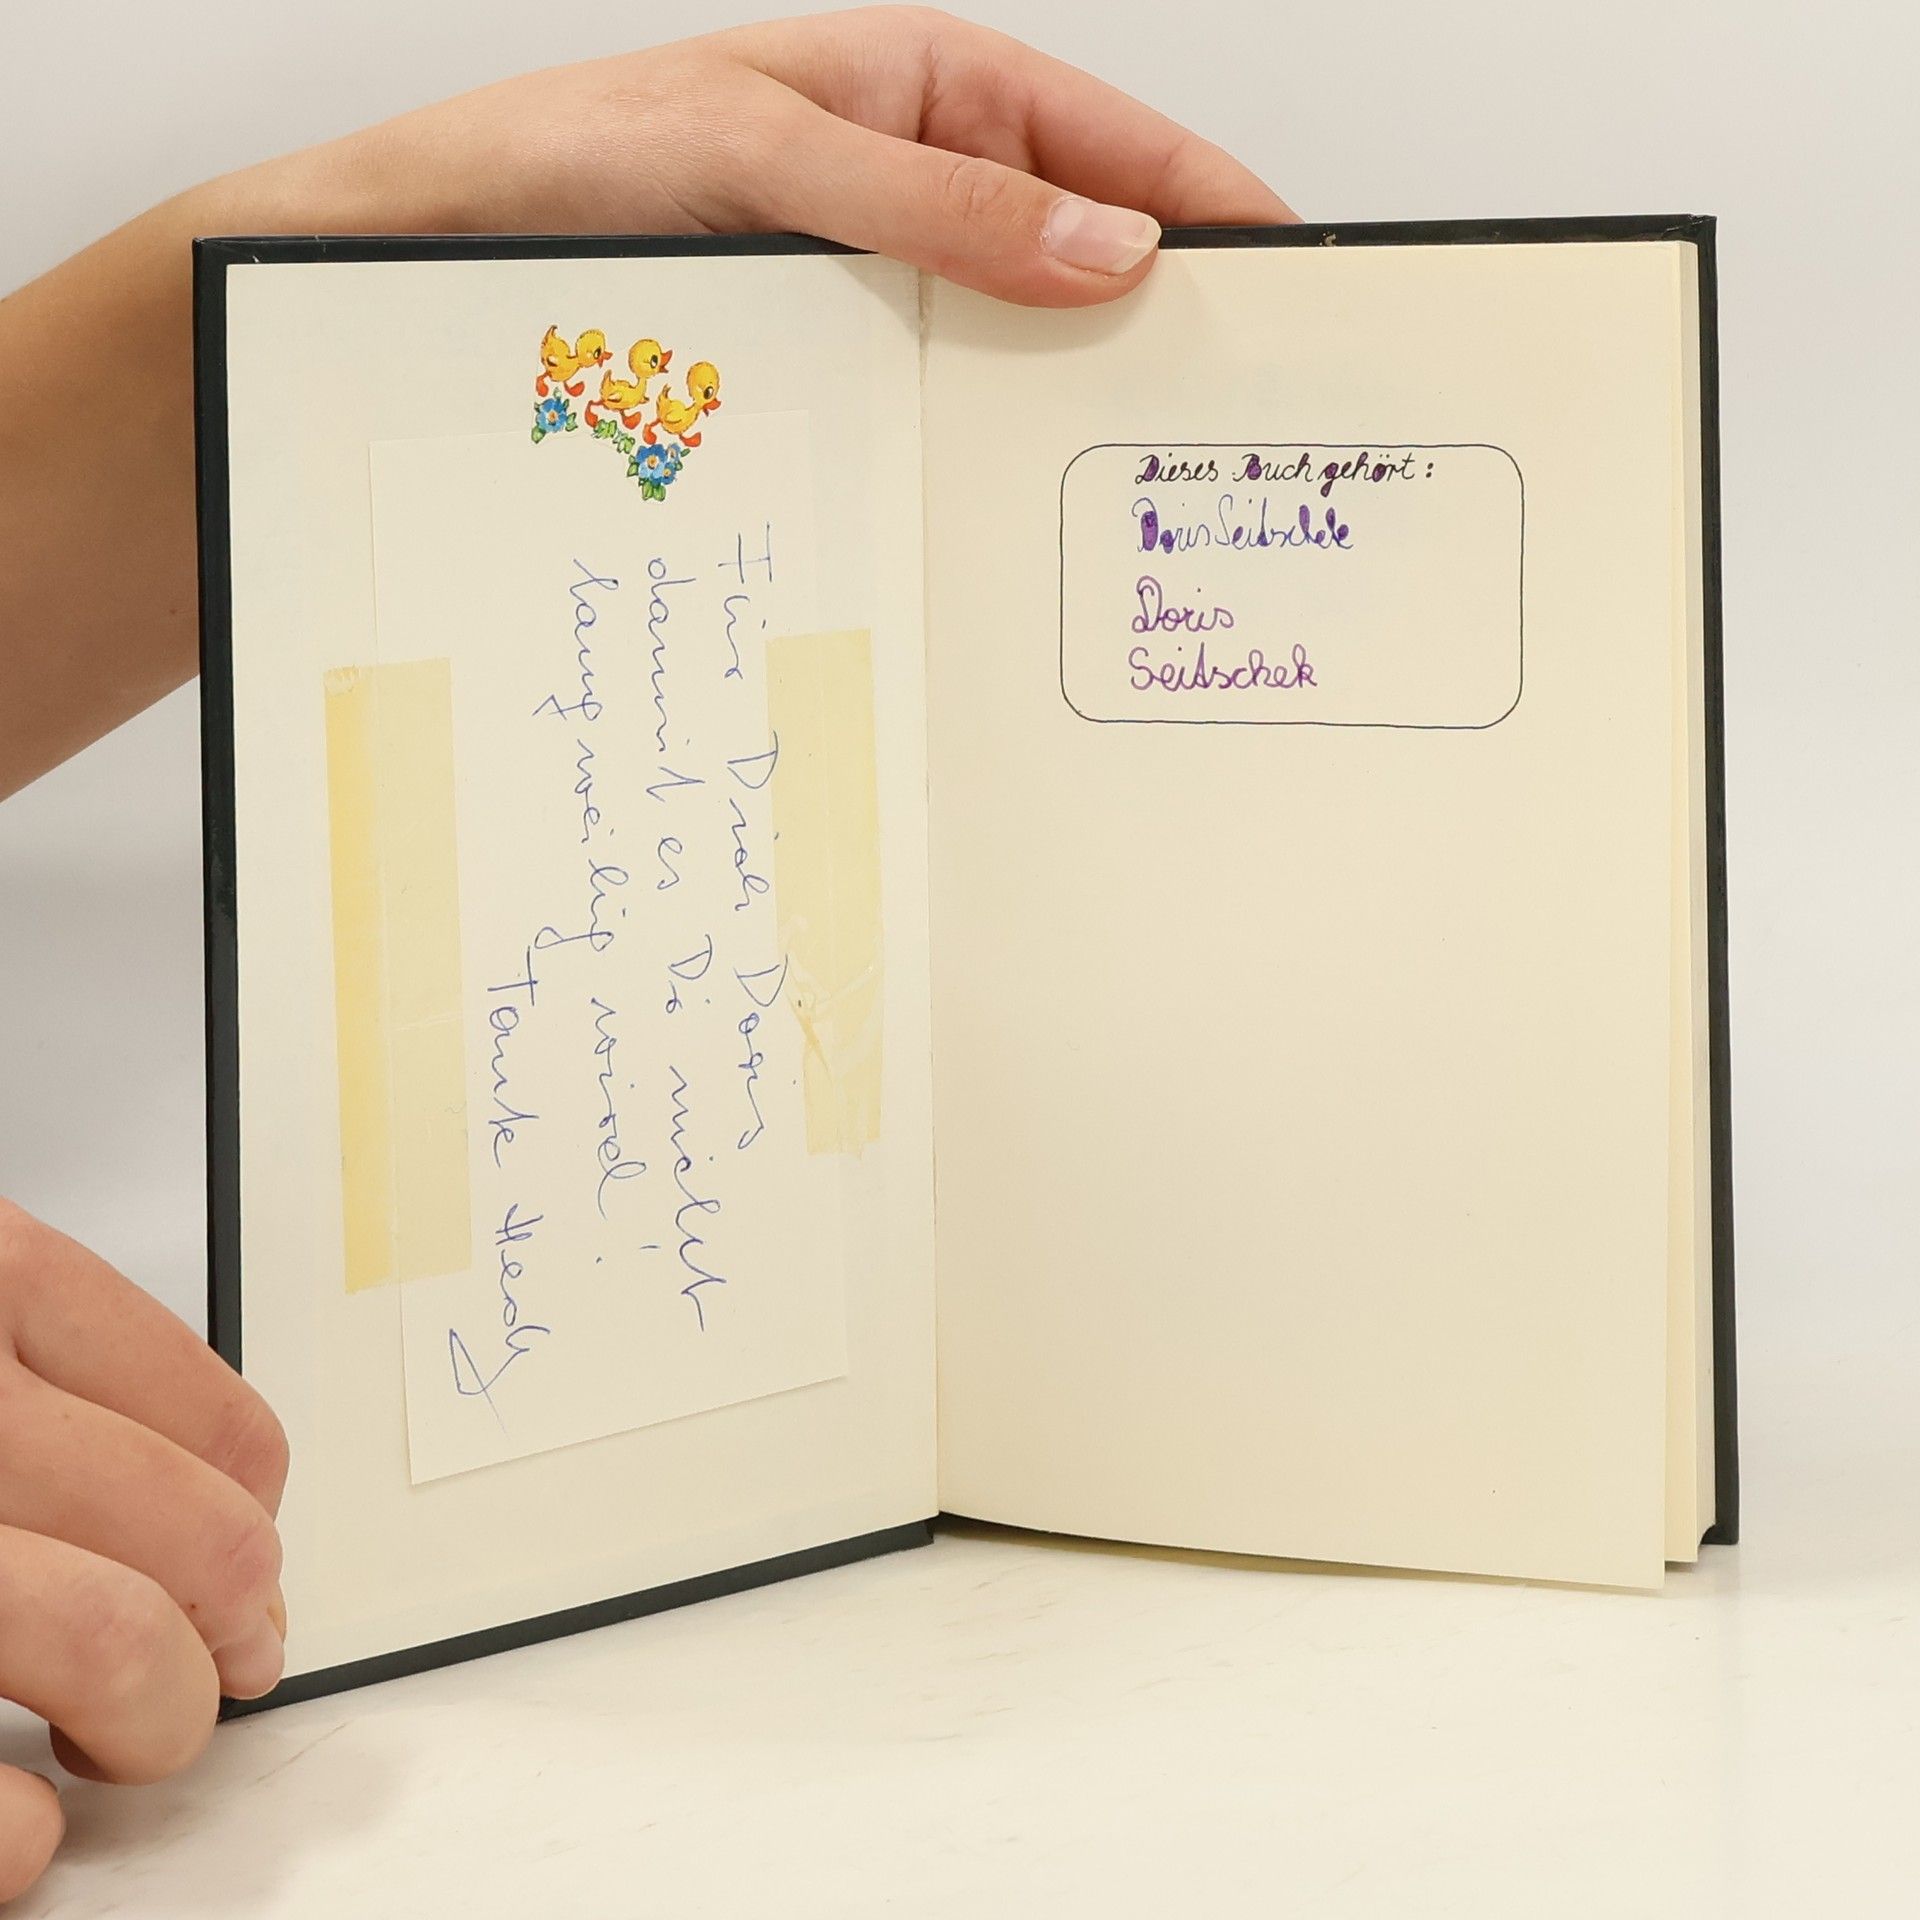 Für Dich Doris
damit es Dir nicht
langweilig wird!
Tante Hedy
Dieses Buch gehört:
Doris Seitschek
Doris
Seitschek